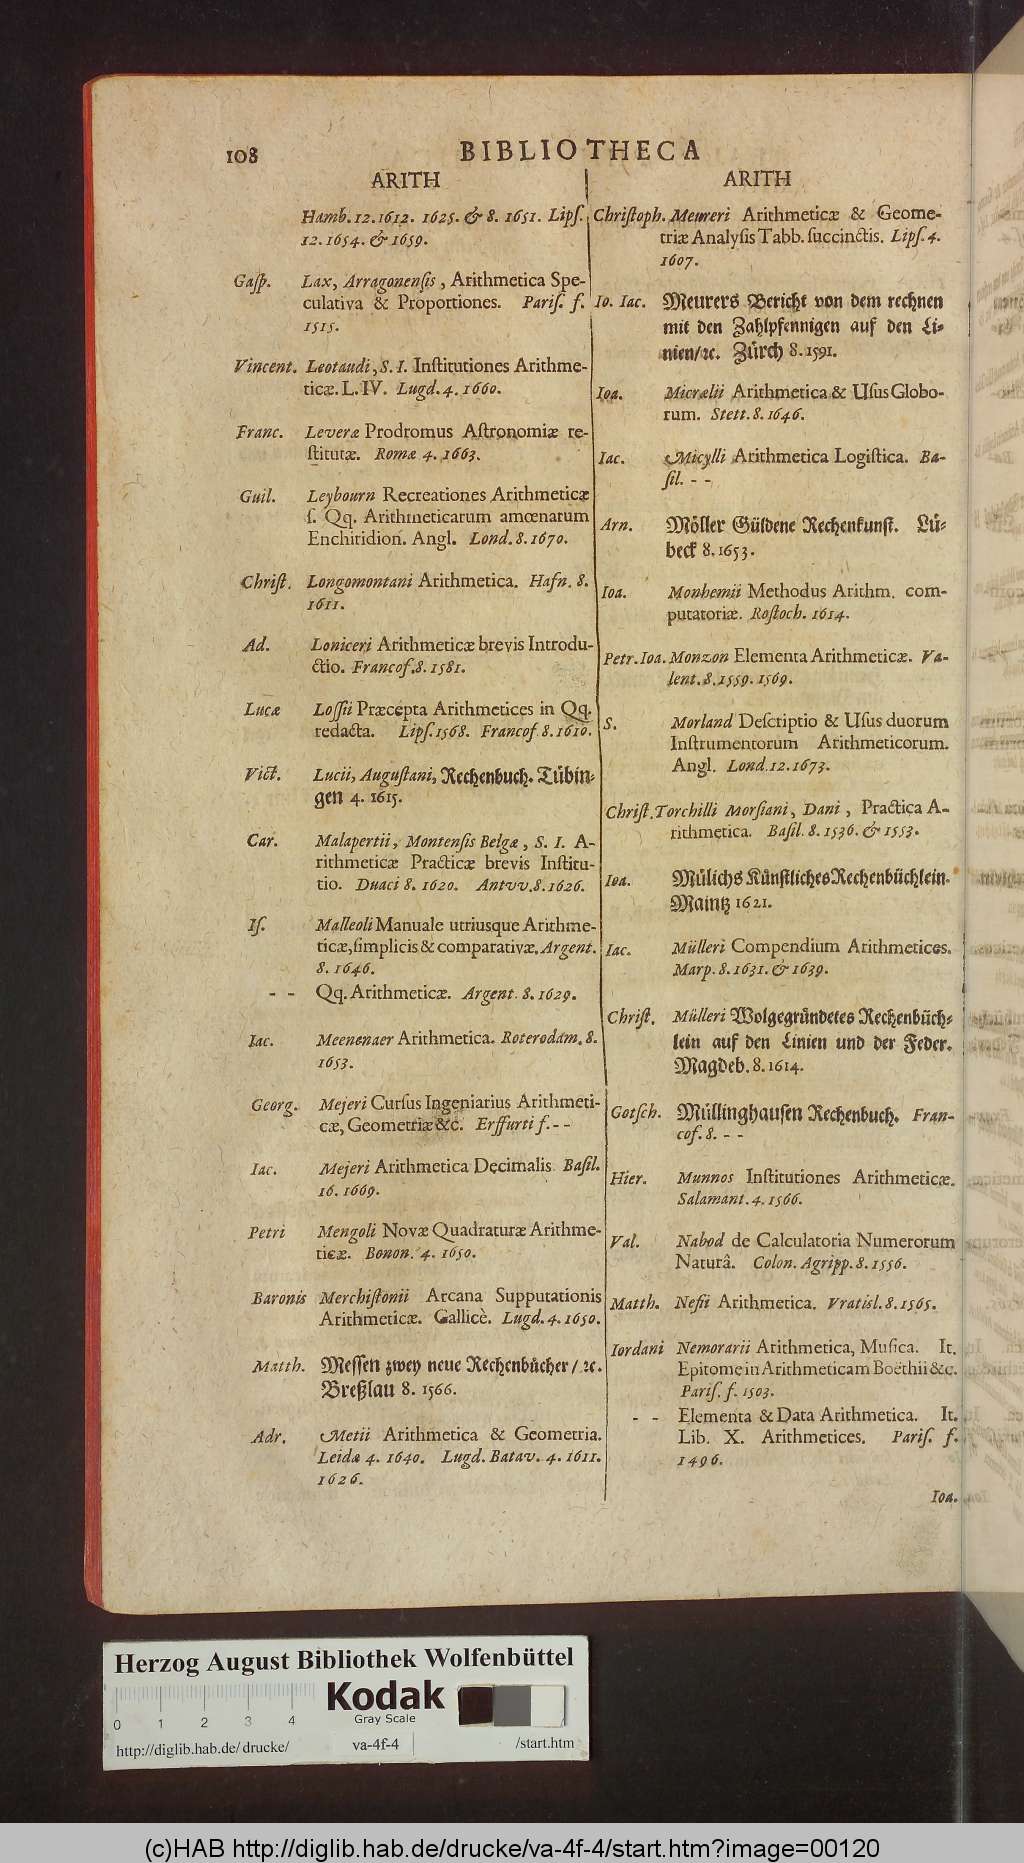 108 BIBLIOTHECA
ARITH
Hamb. 12. 1612. 1625. & 8. 1651. Lipſ.
12. 1654. & 1659.
Gaſp. Lax, Arragonenſis, Arithmetica Spe-
culativa & Proportiones. Pariſ. f.
1515.
Vincent. Leotaudi, S. I. Inſtitutiones Arithme-
ticæ. L. IV. Lugd. 4. 1660.
Franc. Leveræ Prodromus Aſtronomiæ re-
ſtitutæ. Romæ 4. 1663.
Guil. Leybourn Recreationes Arithmeticæ
ſ. Qq. Arithmeticarum amœnarum
Enchiridion. Angl. Lond. 8. 1670.
Chriſt. Longomontani Arithmetica. Hafn. 8.
1611.
Ad. Loniceri Arithmeticæ brevis Introdu-
ctio. Francof. 8. 1581.
Lucæ Loſſii Præcepta Arithmetices in Qq.
redacta. Lipſ. 1568. Francof 8. 1610.
Vict. Lucii, Auguſtani, Rechenbuch. Tübin-
gen 4. 1615.
Car. Malapertii, Montenſis Belgæ, S. I. A-
rithmeticæ Practicæ brevis Inſtitu-
tio. Duaci 8. 1620. Antvv. 8. 1626.
Iſ. Malleoli Manuale utriusque Arithme-
ticæ, ſimplicis & comparativæ. Argent.
8. 1646.
- - Qq. Arithmeticæ. Argent. 8. 1629.
Iac. Meenenaer Arithmetica. Roterodam. 8.
1653.
Georg. Mejeri Curſus Ingeniarius Arithmeti-
cæ, Geometriæ &c. Erffurti f. - -
Iac. Mejeri Arithmetica Decimalis. Baſil.
16. 1669.
Petri Mengoli Novæ Quadraturæ Arithme-
ticæ. Bonon. 4. 1650.
Baronis Merchiſtonii Arcana Supputationis
Arithmeticæ. Gallicè. Lugd. 4. 1650.
Matth. Meſſen zwey neue Rechenbücher / ꝛc.
Breßlau 8. 1566.
Adr. Metii Arithmetica & Geometria.
Leidæ 4. 1640. Lugd. Batav. 4. 1611.
1626.
ARITH
Chriſtoph. Meureri Arithmeticæ & Geome-
triæ Analyſis Tabb. ſuccinctis. Lipſ. 4.
1607.
Io. Iac. Meurers Bericht von dem rechnen
mit den Zahlpfennigen auf den Li-
nien / ꝛc. Zürch 8. 1591.
Ioa. Micrælii Arithmetica & Uſus Globo-
rum. Stett. 8. 1646.
Iac. Micylli Arithmetica Logiſtica. Ba-
ſil. - -
Arn. Möller Güldene Rechenkunſt. Lü-
beck 8. 1653.
Ioa. Monhemii Methodus Arithm. com-
putatoriæ. Roſtoch. 1614.
Petr. Ioa. Monzon Elementa Arithmeticæ. Va-
lent. 8. 1559. 1569.
S. Morland Deſcriptio & Uſus duorum
Inſtrumentorum Arithmeticorum.
Angl. Lond. 12. 1673.
Chriſt. Torchilli Morſiani, Dani, Practica A-
rithmetica. Baſil. 8. 1536. & 1553.
Ioa. Mülichs Künſtliches Rechenbüchlein.
Maintz 1621.
Iac. Mülleri Compendium Arithmetices.
Marp. 8. 1631. & 1639.
Chriſt. Mülleri Wolgegründetes Rechenbüch-
lein auf den Linien und der Feder.
Magdeb. 8. 1614.
Gotſch. Müllinghauſen Rechenbuch. Fran-
cof. 8. - -
Hier. Munnos Inſtitutiones Arithmeticæ.
Salamant. 4. 1566.
Val. Nabod de Calculatoria Numerorum
Naturâ. Colon. Agripp. 8. 1556.
Matth. Nefii Arithmetica. Vratisl. 8. 1565.
Iordani Nemorarii Arithmetica, Muſica. It.
Epitome in Arithmeticam Boëthii &c.
Pariſ. f. 1503.
- - Elementa & Data Arithmetica. It.
Lib. X. Arithmetices. Pariſ. f.
1496.
Ioa.
Herzog August Bibliothek Wolfenbüttel
Kodak
Gray Scale
0 1 2 3 4
http://diglib.hab.de/drucke/ va-4f-4 /start.htm
(c)HAB http://diglib.hab.de/drucke/va-4f-4/start.htm?image=00120